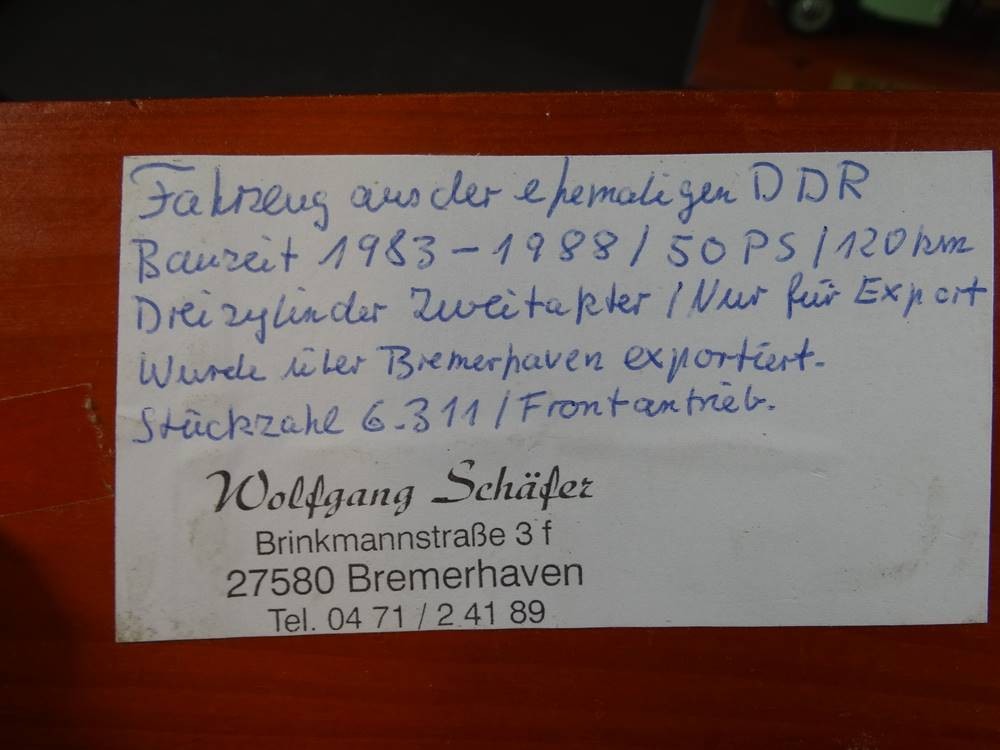 Fahrzeug aus der ehemaligen DDR
Bauzeit 1983 - 1988 / 50 PS / 120 km
Dreizylinder Zweitakter / Nur für Export
Wurde über Bremerhaven exportiert.
Stückzahl 6.311 / Frontantrieb.
Wolfgang Schäfer
Brinkmannstraße 3 f
27580 Bremerhaven
Tel. 04 71 / 2 41 89